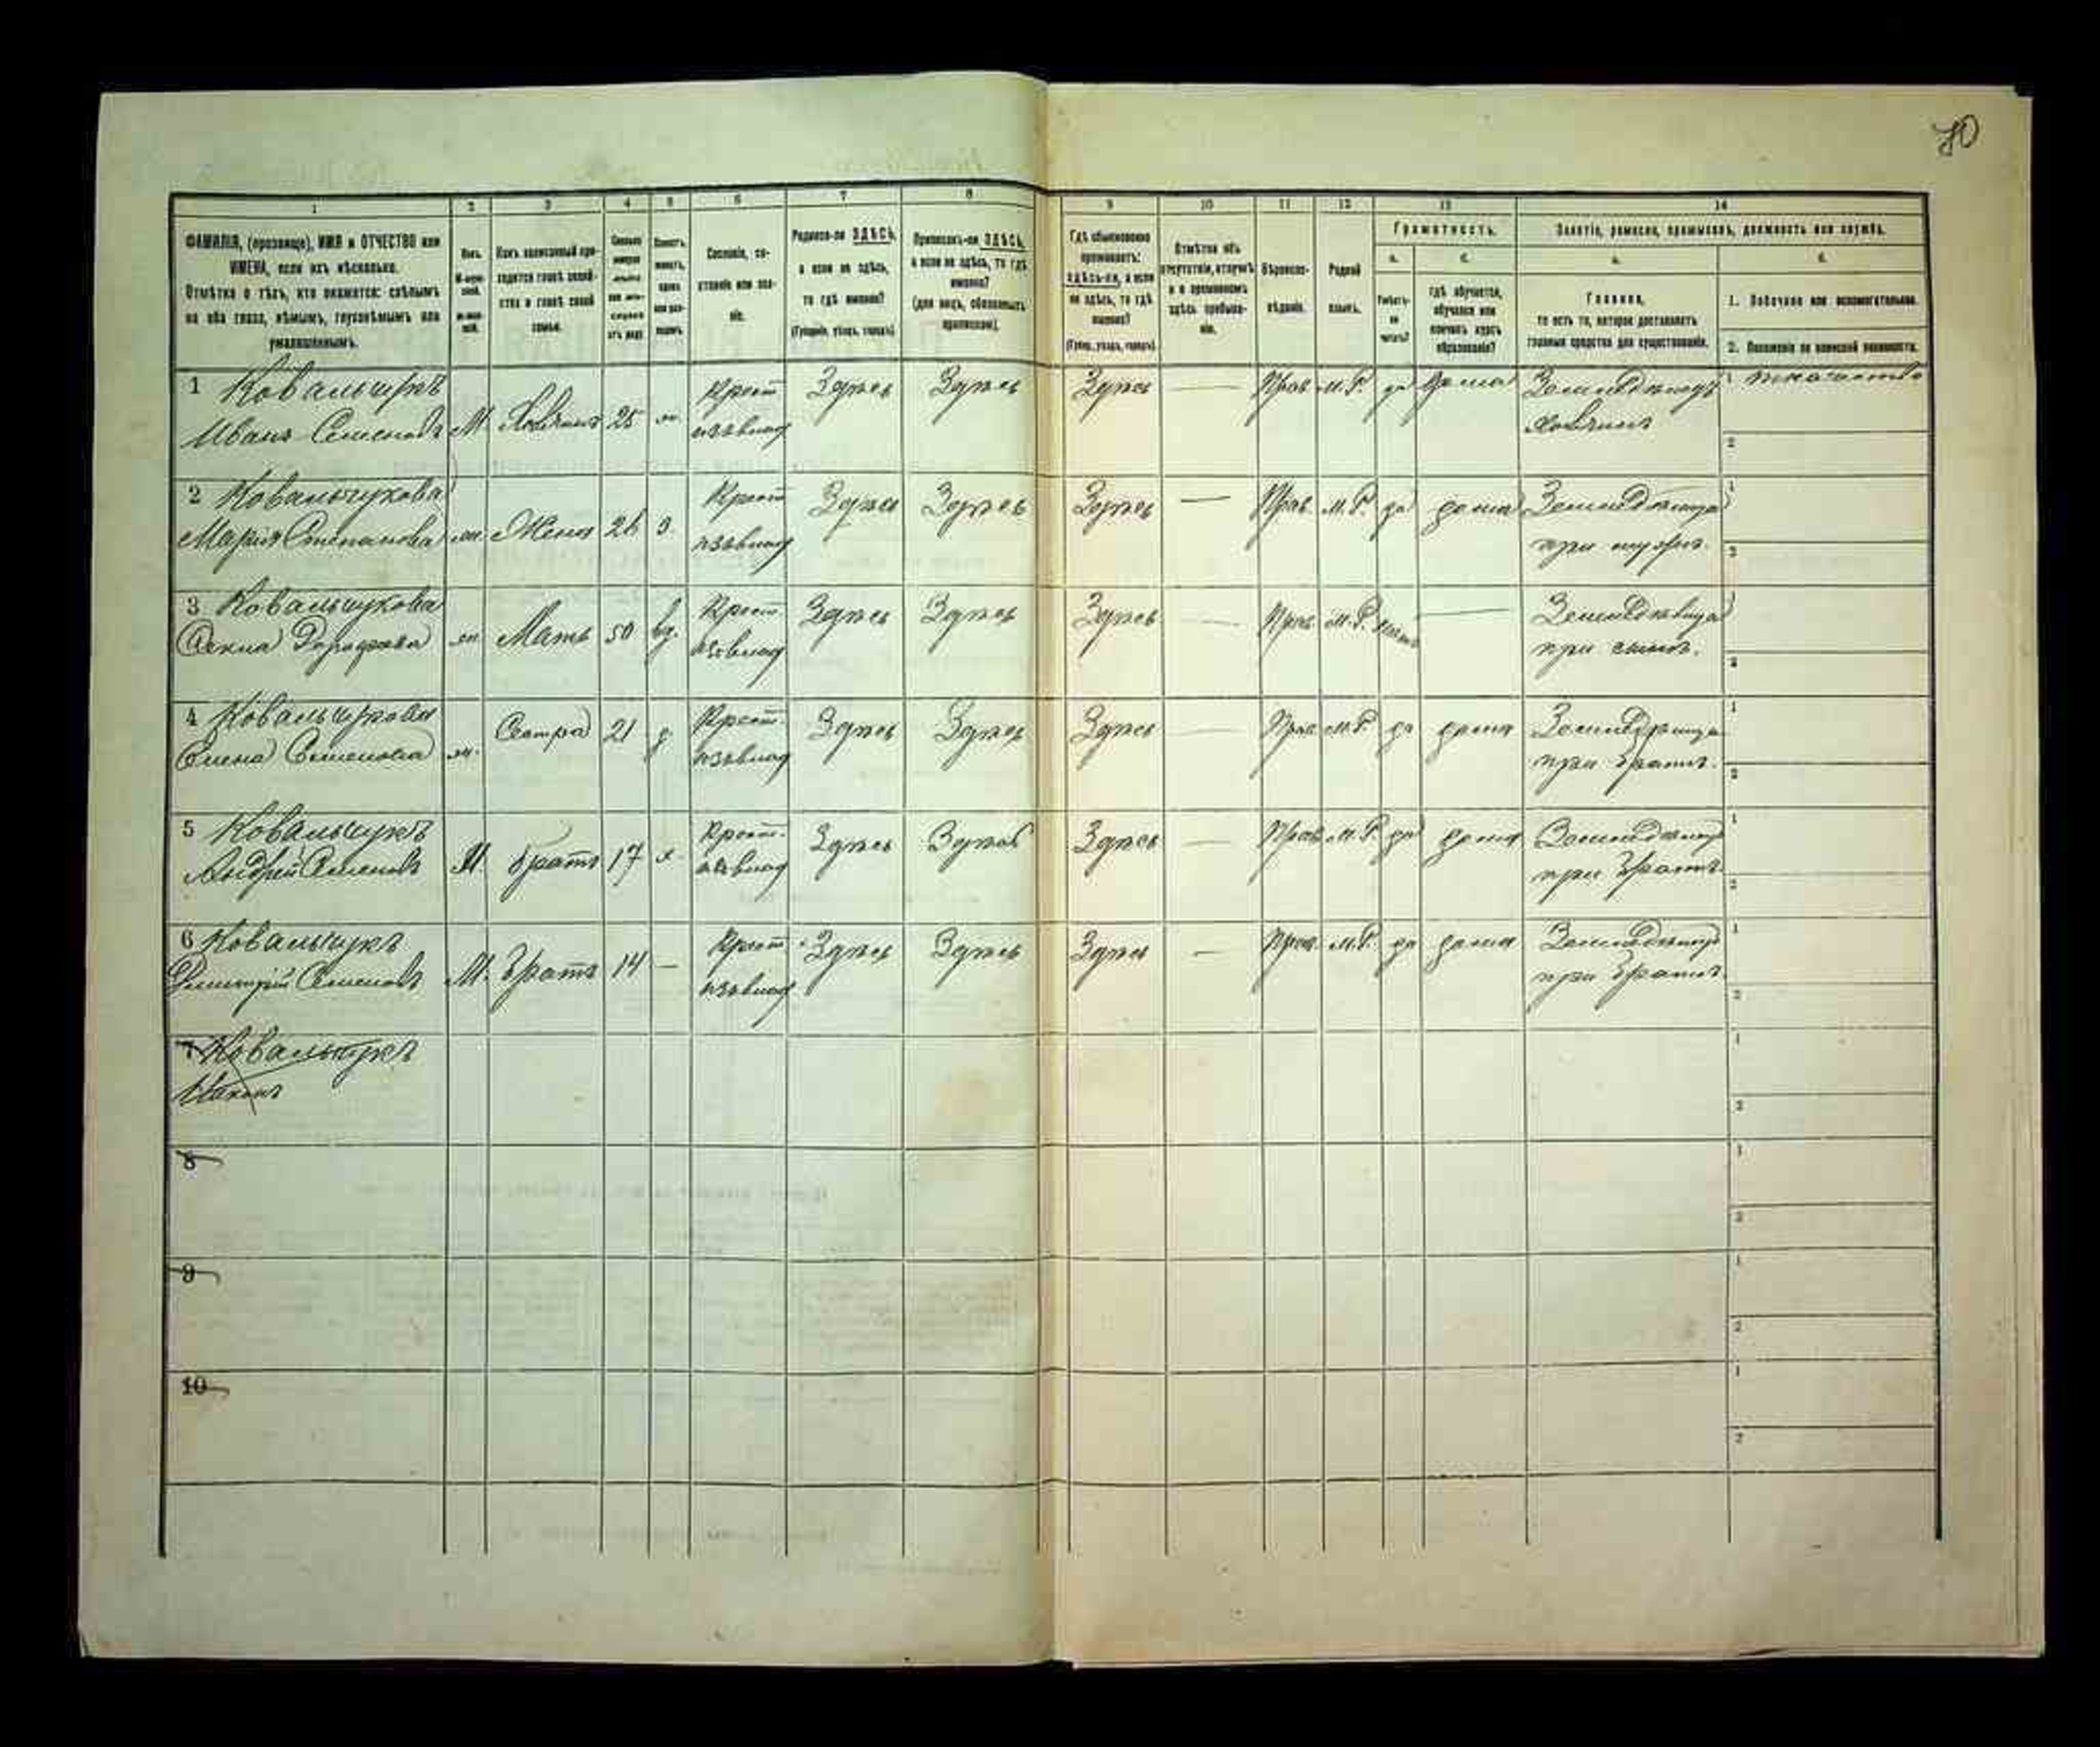 70
1 2 3 4 5 6 7 8 9 10 11 12 13 14
ФАМИЛІЯ, (прозвище), ИМЯ и ОТЧЕСТВО или
ИМЕНА, если ихъ нѣсколько.
Отмѣтка о тѣхъ, кто окажется: слѣпымъ
на оба глаза, нѣмымъ, глухонѣмымъ или
умалишеннымъ.
Полъ.
Какъ записанный при-
ходится главѣ хозяй-
ства и главѣ своей
семьи.
Сословіе, со-
стояніе или зва-
ніе.
Родился-ли ЗДѢСЬ,
а если не здѣсь,
то гдѣ именно?
(Губернія, уѣздъ, городъ).
Приписанъ-ли ЗДѢСЬ,
а если не здѣсь, то гдѣ
именно?
(для лицъ, обязанныхъ
припискою).
Гдѣ обыкновенно
проживаетъ:
здѣсь-ли, а если
не здѣсь, то гдѣ
именно?
(Губер., уѣздъ, городъ).
Отмѣтка объ
отсутствіи, отлучкѣ
и о временномъ
здѣсь пребыва-
ніи.
Вѣроиспо-
вѣданіе.
Родной
языкъ.
Грамотность.
а. б.
Умѣетъ-
ли
читать?
гдѣ обучается,
обучался или
кончилъ курсъ
образованія?
Занятіе, ремесло, промыселъ, должность или служба.
а. б.
Главное,
то есть то, которое доставляетъ
главныя средства для существованія.
1. Побочное или вспомогательное.
2. Положеніе по воинской повинности.
1 Ковальчукъ Крест Здѣсь Здѣсь Здѣсь — Прав. М.Р. да дома Земледѣлецъ 1 ткачество
Иванъ Семеновъ М. Хозяинъ 25 изъ влад хозяинъ 2
2 Ковальчукова Крест Здѣсь Здѣсь Здѣсь — Прав. М.Р. да дома Земледѣлица 1
Марія Степанова ж. Жена 26 з. изъ влад при мужѣ. 2
3 Ковальчукова Крест Здѣсь Здѣсь Здѣсь — Прав. М.Р. — Земледѣлица 1
ж. Мать 50 вд. изъ влад при сынѣ. 2
4 Ковальчукова Сестра 21 д. Крест. Здѣсь Здѣсь Здѣсь — Прав. М.Р. да дома Земледѣлица 1
Елена Семенова ж. изъ влад при братѣ. 2
5 Ковальчукъ Крест. Здѣсь Здѣсь Здѣсь — Прав. М.Р. да дома Земледѣлецъ 1
Андрей Семеновъ М. братъ 17 х. изъ влад при братѣ. 2
6 Ковальчукъ Крест Здѣсь Здѣсь Здѣсь — Прав. М.Р. да дома Земледѣлецъ 1
Дмитрій Семеновъ М. братъ 14 — изъ влад при братѣ. 2
7 Ковальчукъ 1
2
8 1
2
9 1
2
10 1
2